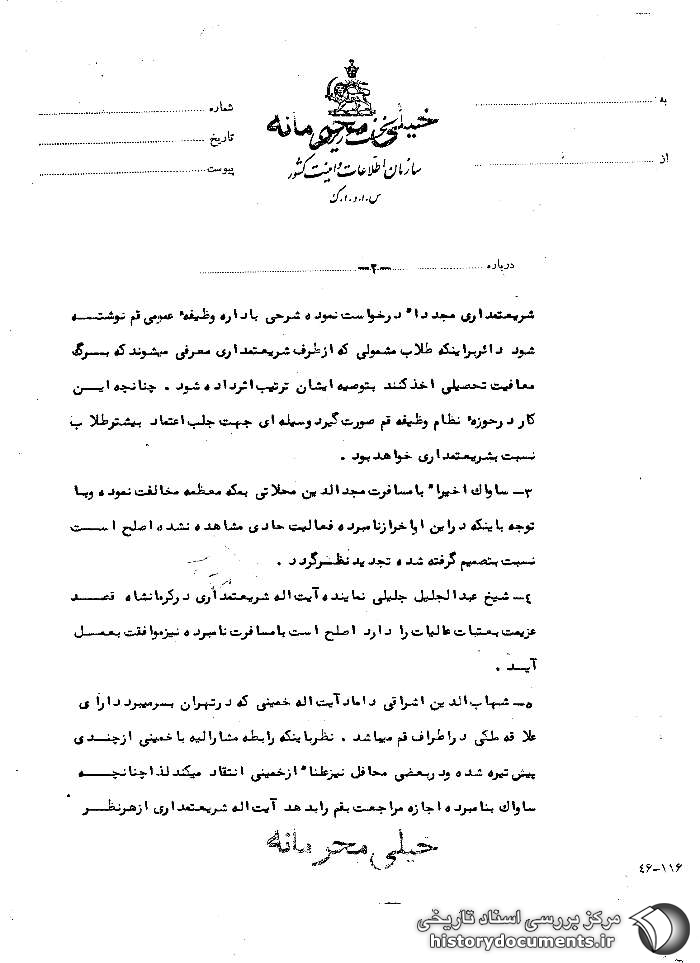 به
شماره
خیلی محرمانه
تاریخ
از
سازمان اطلاعات و امنیت کشور
پیوست
س.ا.و.ا.ک
درباره
-۲-
شریعتمداری مجددا" درخواست نموده شرحی باداره وظیفه عمومی قم نوشته
شود دائر براینکه طلاب مشمولی که ازطرف شریعتمداری معرفی میشوند که برگ
معافیت تحصیلی اخذ کنند بتوصیه ایشان ترتیب اثر داده شود . چنانچه این
کار درحوزه نظام وظیفه قم صورت گیرد وسیله ای جهت جلب اعتماد بیشتر طلاب
نسبت بشریعتمداری خواهد بود .
۳- ساواک اخیرا" بامسافرت مجدالدین محلاتی بمکه معظمه مخالفت نموده وبا
توجه باینکه دراین اواخر ازنامبرده فعالیت حادی مشاهده نشده اصلح است
نسبت بتصمیم گرفته شده تجدید نظر گردد .
۴- شیخ عبدالجلیل جلیلی نماینده آیت اله شریعتمداری درکرمانشاه قصد
عزیمت بعتبات عالیات را دارد اصلح است بامسافرت نامبرده نیز موافقت بعمل
آید .
۵- شهاب الدین اشراقی داماد آیت اله خمینی که درتهران بسرمیبرد دارای
علاقه ملکی دراطراف قم میباشد . نظرباینکه رابطه مشارالیه با خمینی ازچندی
پیش تیره شده ودربعضی محافل نیزعلنا" ازخمینی انتقاد میکند لذا چنانچه
ساواک بنامبرده اجازه مراجعت بقم رابدهد آیت اله شریعتمداری ازهرنظر
خیلی محرمانه
۴۶-۱۱۶
مرکز بررسی اسناد تاریخی
historydocuments.ir